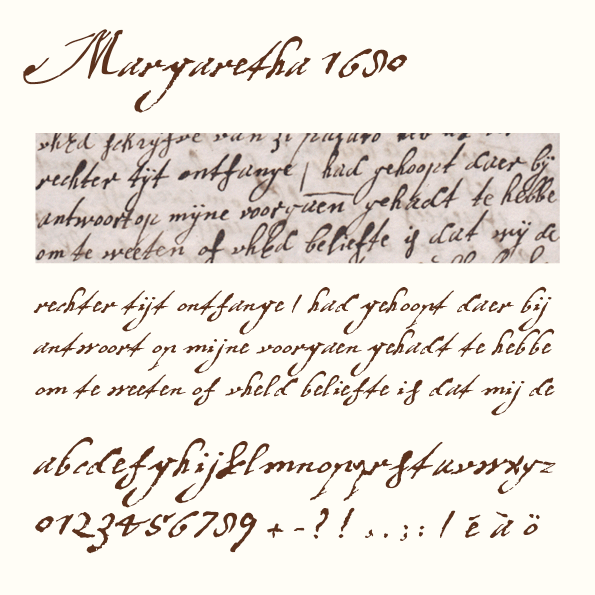 Margaretha 1680
rechter tijt ontfange / had gehoopt daer bij
antwoort op mijne voorgaen gehadt te hebbe
om te weeten of vheld beliefte is dat mij de
rechter tijt ontfange / had gehoopt daer bij
antwoort op mijne voorgaen gehadt te hebbe
om te weeten of vheld beliefte is dat mij de
abcdefghijklmnopqrstuvwxyz
0123456789 + - ? ! , . ; : / é à ö